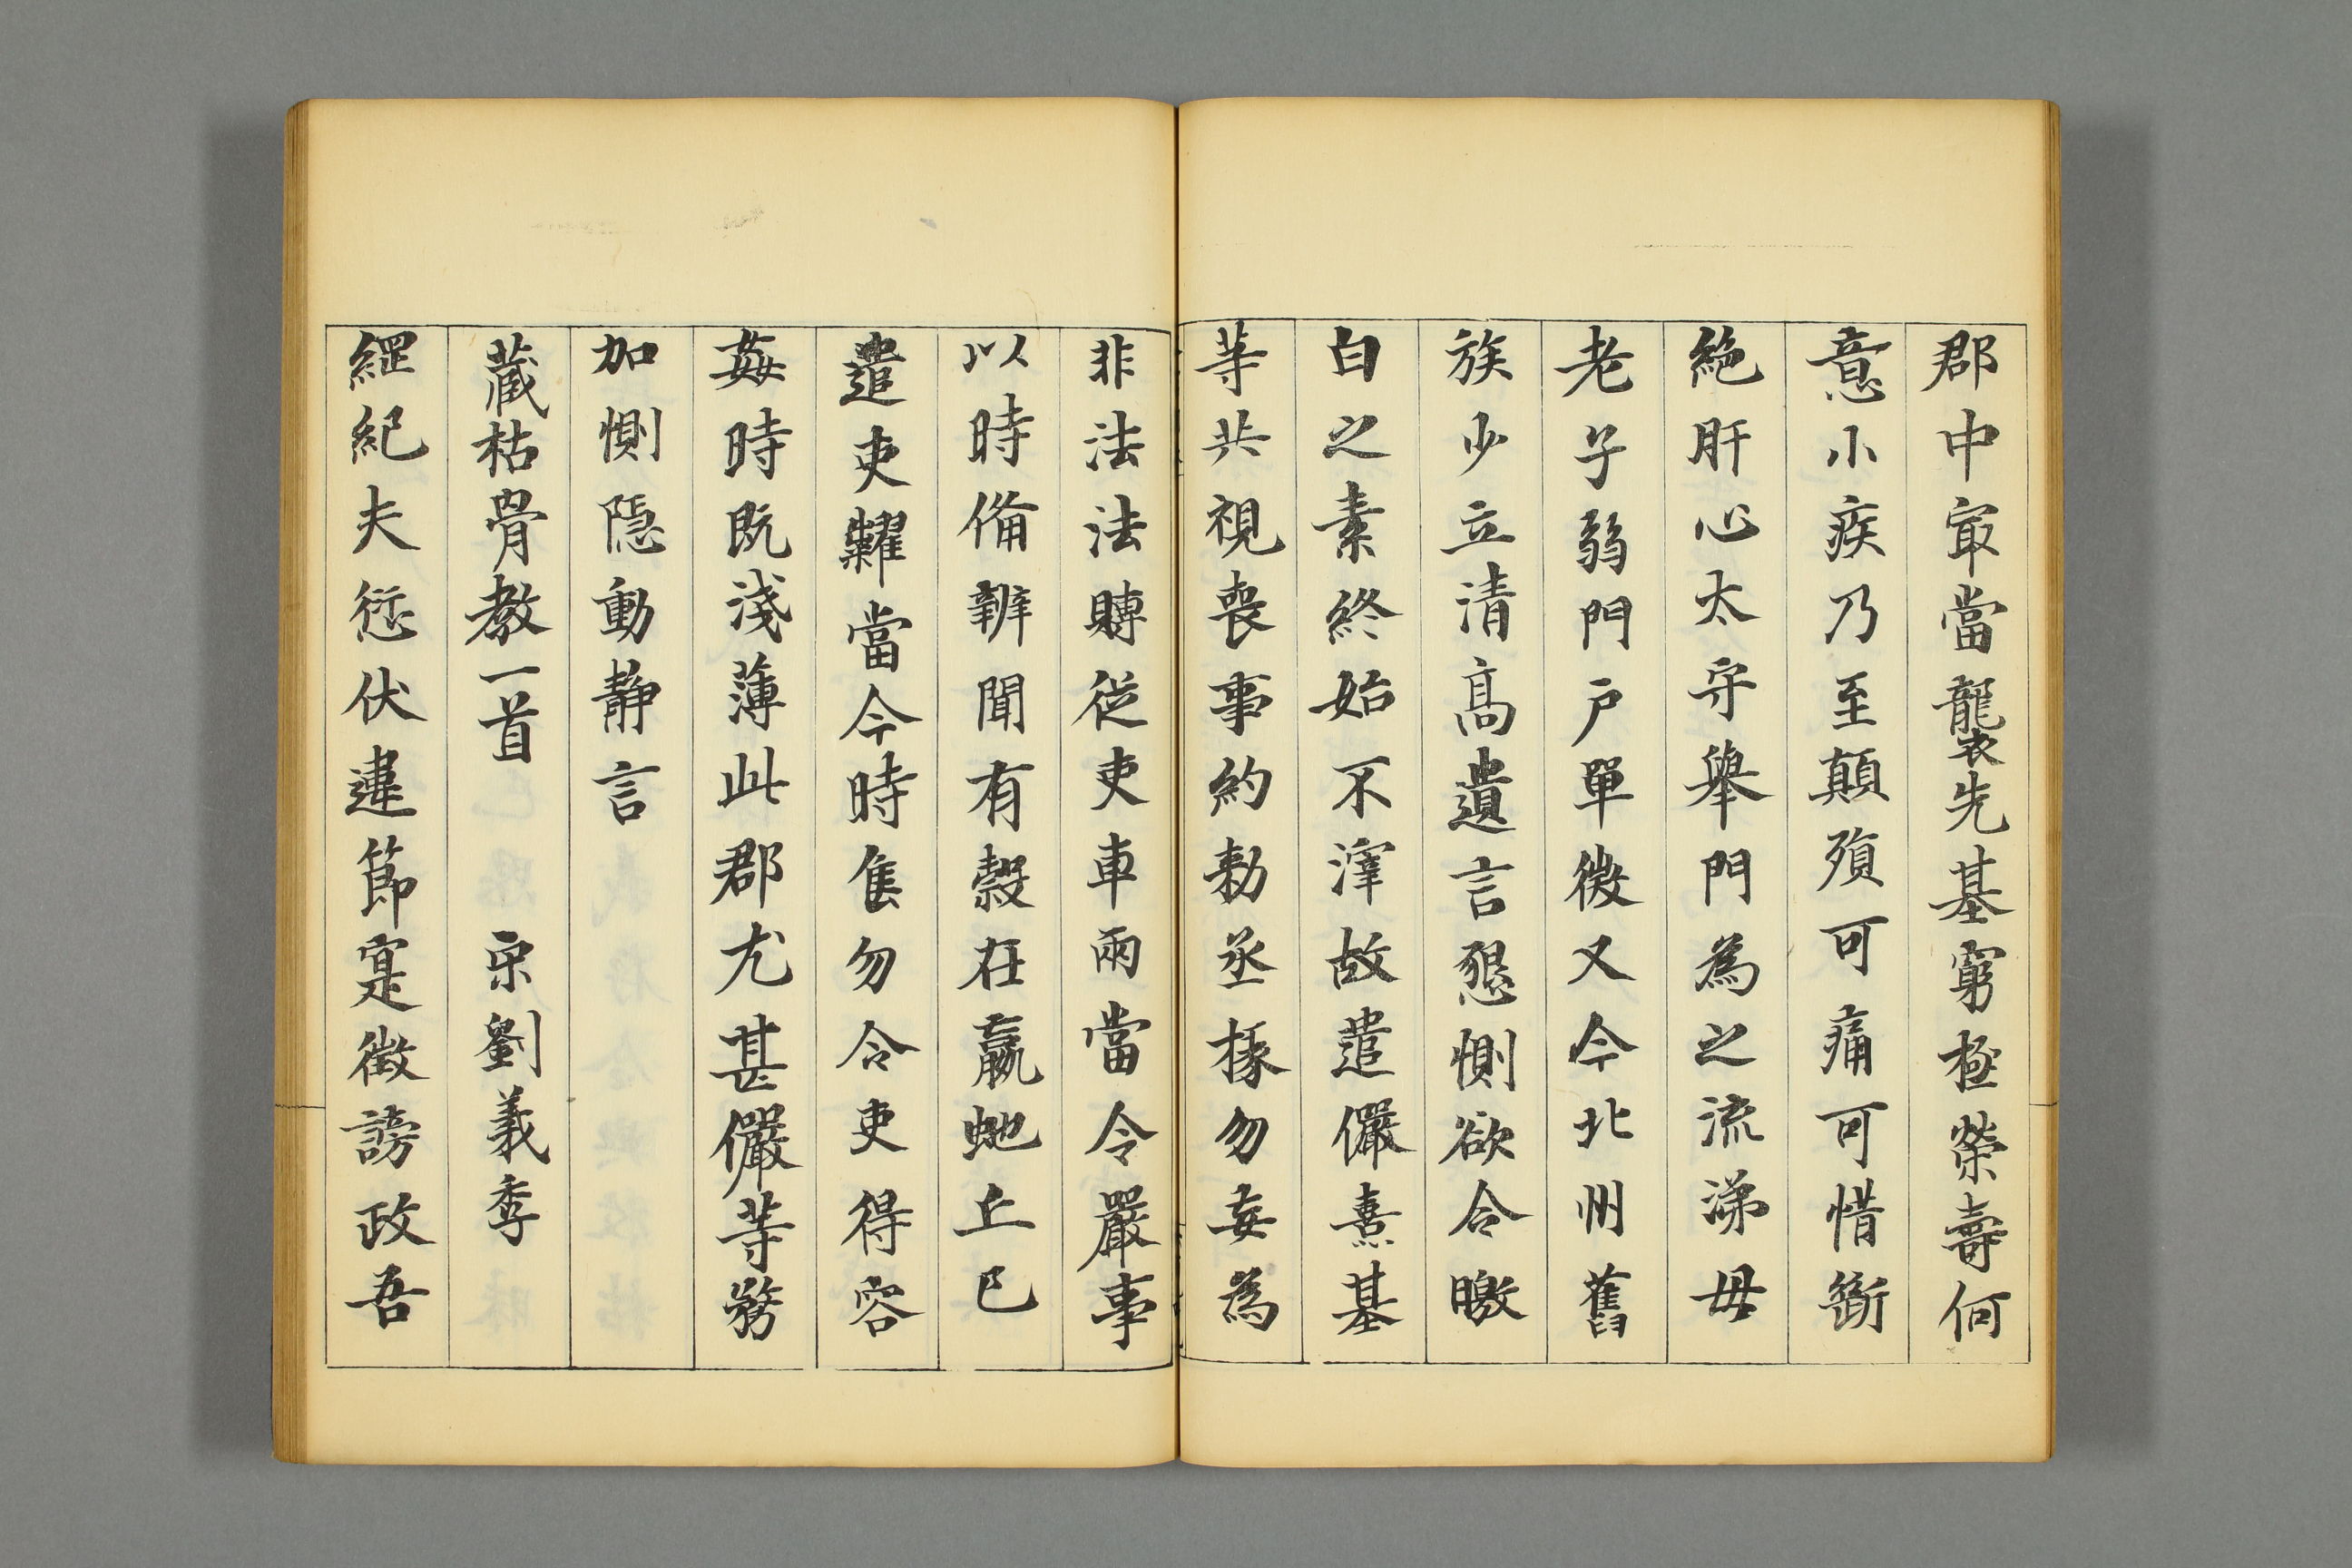 郡中冣當襲先基窮極榮壽何
意小疾乃至顛殞可痛可惜斷
絶肝心太守舉門為之流涕毋
老子弱門戶單微又今北州舊
族少立清髙遺言懇惻欲令曒
白之素終始不滓故遣儼熹基
等共視喪事約勑丞掾勿妄為
非法法賻従吏車兩當令嚴事
以時俻辦聞有縠在嬴虵丘已
遣吏糶當今時隻勿令吏得容
姦時既淺薄此郡尤甚儼等務
加惻隠動静言
蔵枯骨教一首　宋劉義季
綱紀夫愆伏違節寔徵謗政吾